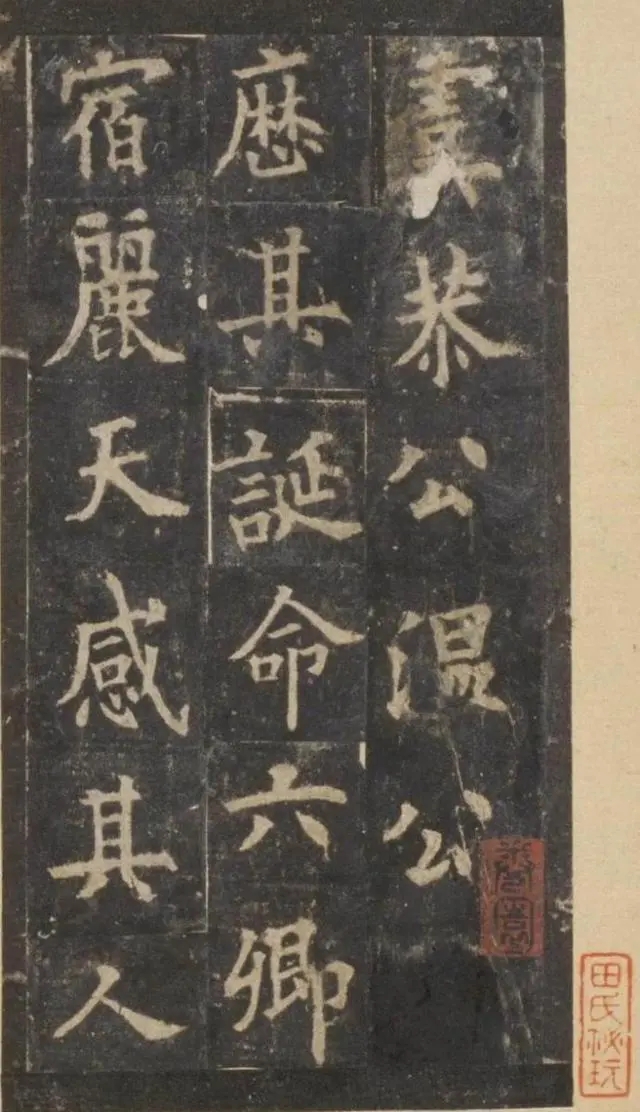 虞恭公温公
歴其誕命六卿
宿麗天感其人
田氏祕玩